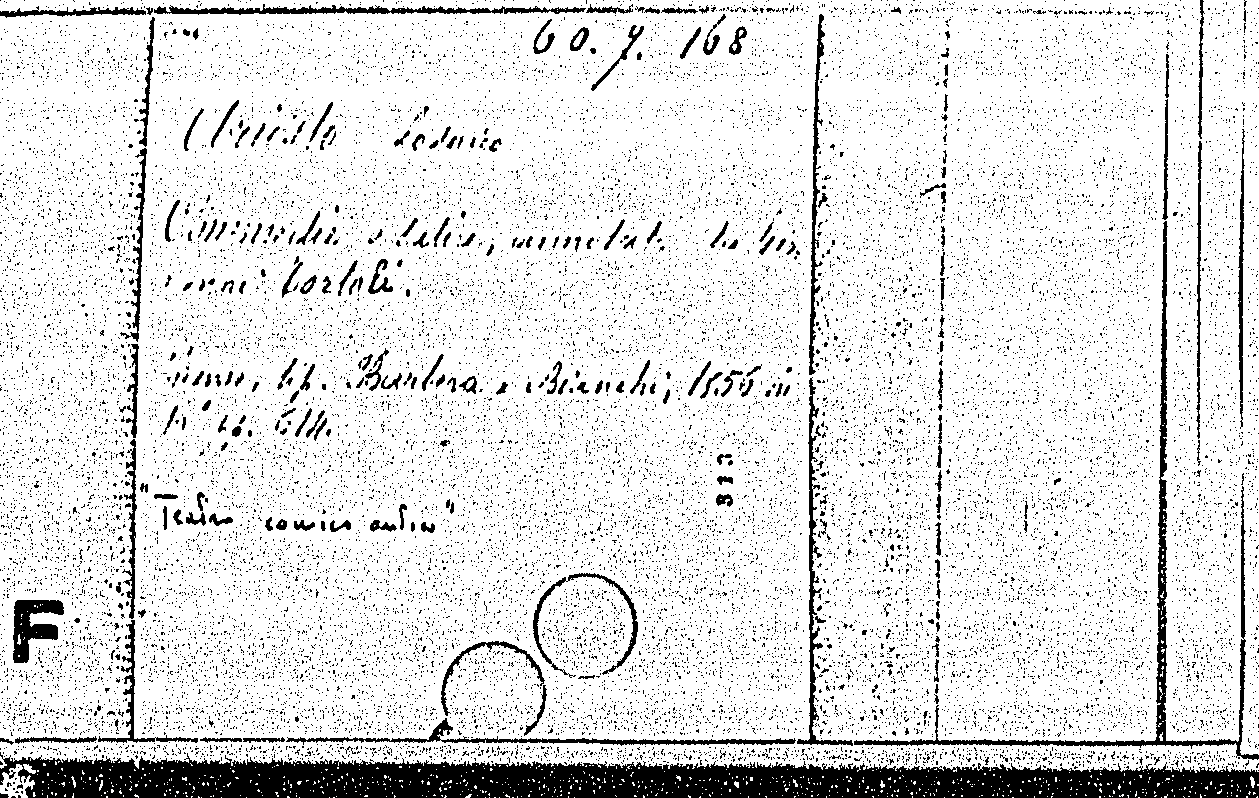 60. 7. 168
Ariosto Lodovico
Commedie e Satire, annotate da Gio
vanni Tortoli.
Firenze, tip. Barbera e Bianchi, 1856 in
pp. 614.
"Teatro comico antico"
813
F